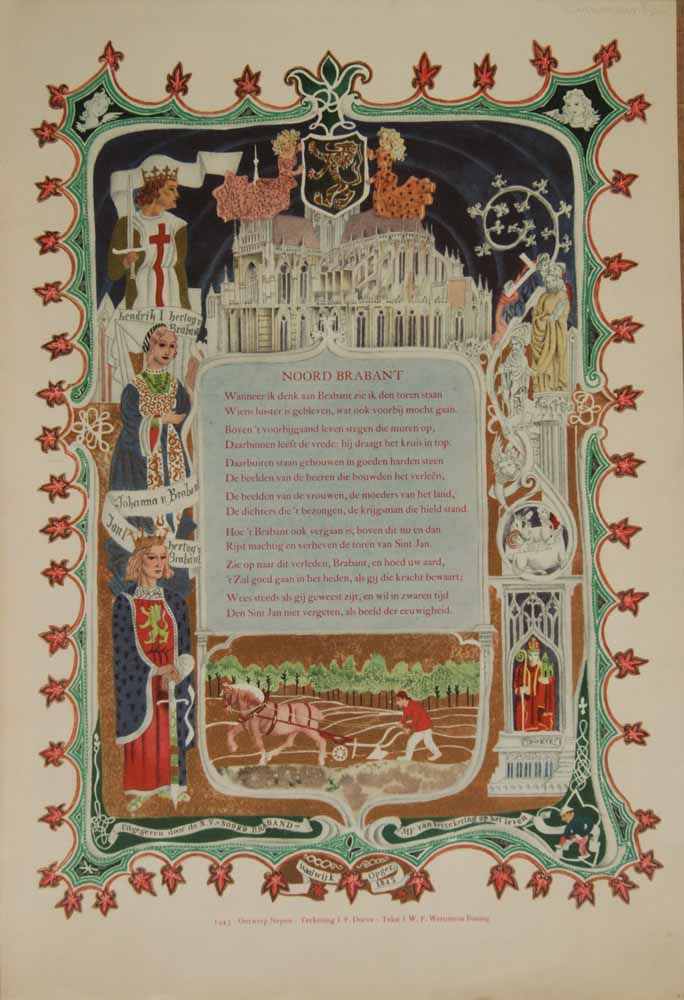 Hendrik I hertog v
Brabant
Johanna v Braban
Jan I
hertog v
Brabant
NOORD BRABANT
Wanneer ik denk aan Brabant zie ik den toren staan
Wiens luister is gebleven, wat ook voorbij mocht gaan.
Boven 't voorbijgaand leven stegen die muren op,
Daarbinnen leeft de vrede: hij draagt het kruis in top.
Daarbuiten staan gehouwen in goeden harden steen
De beelden van de heeren die bouwden het verleên,
De beelden van de vrouwen, de moeders van het land,
De dichters die 't bezongen, de krijgsman die hield stand.
Hoe 't Brabant ook vergaan is, boven dit nu en dan
Rijst machtig en verheven de toren van Sint Jan.
Zie op naar dit verleden, Brabant, en hoed uw aard,
't Zal goed gaan in het heden, als gij die kracht bewaart;
Wees steeds als gij geweest zijt, en wil in zwaren tijd
Den Sint Jan niet vergeten, als beeld der eeuwigheid.
Uitgegeven door de N.V. NOORD BRABAND
Mij van verzekering op het leven
Waalwijk Opger. 1843
1943 · Ontwerp Nypels · Teekening J. F. Doeve · Tekst J. W. F. Werumeus Buning